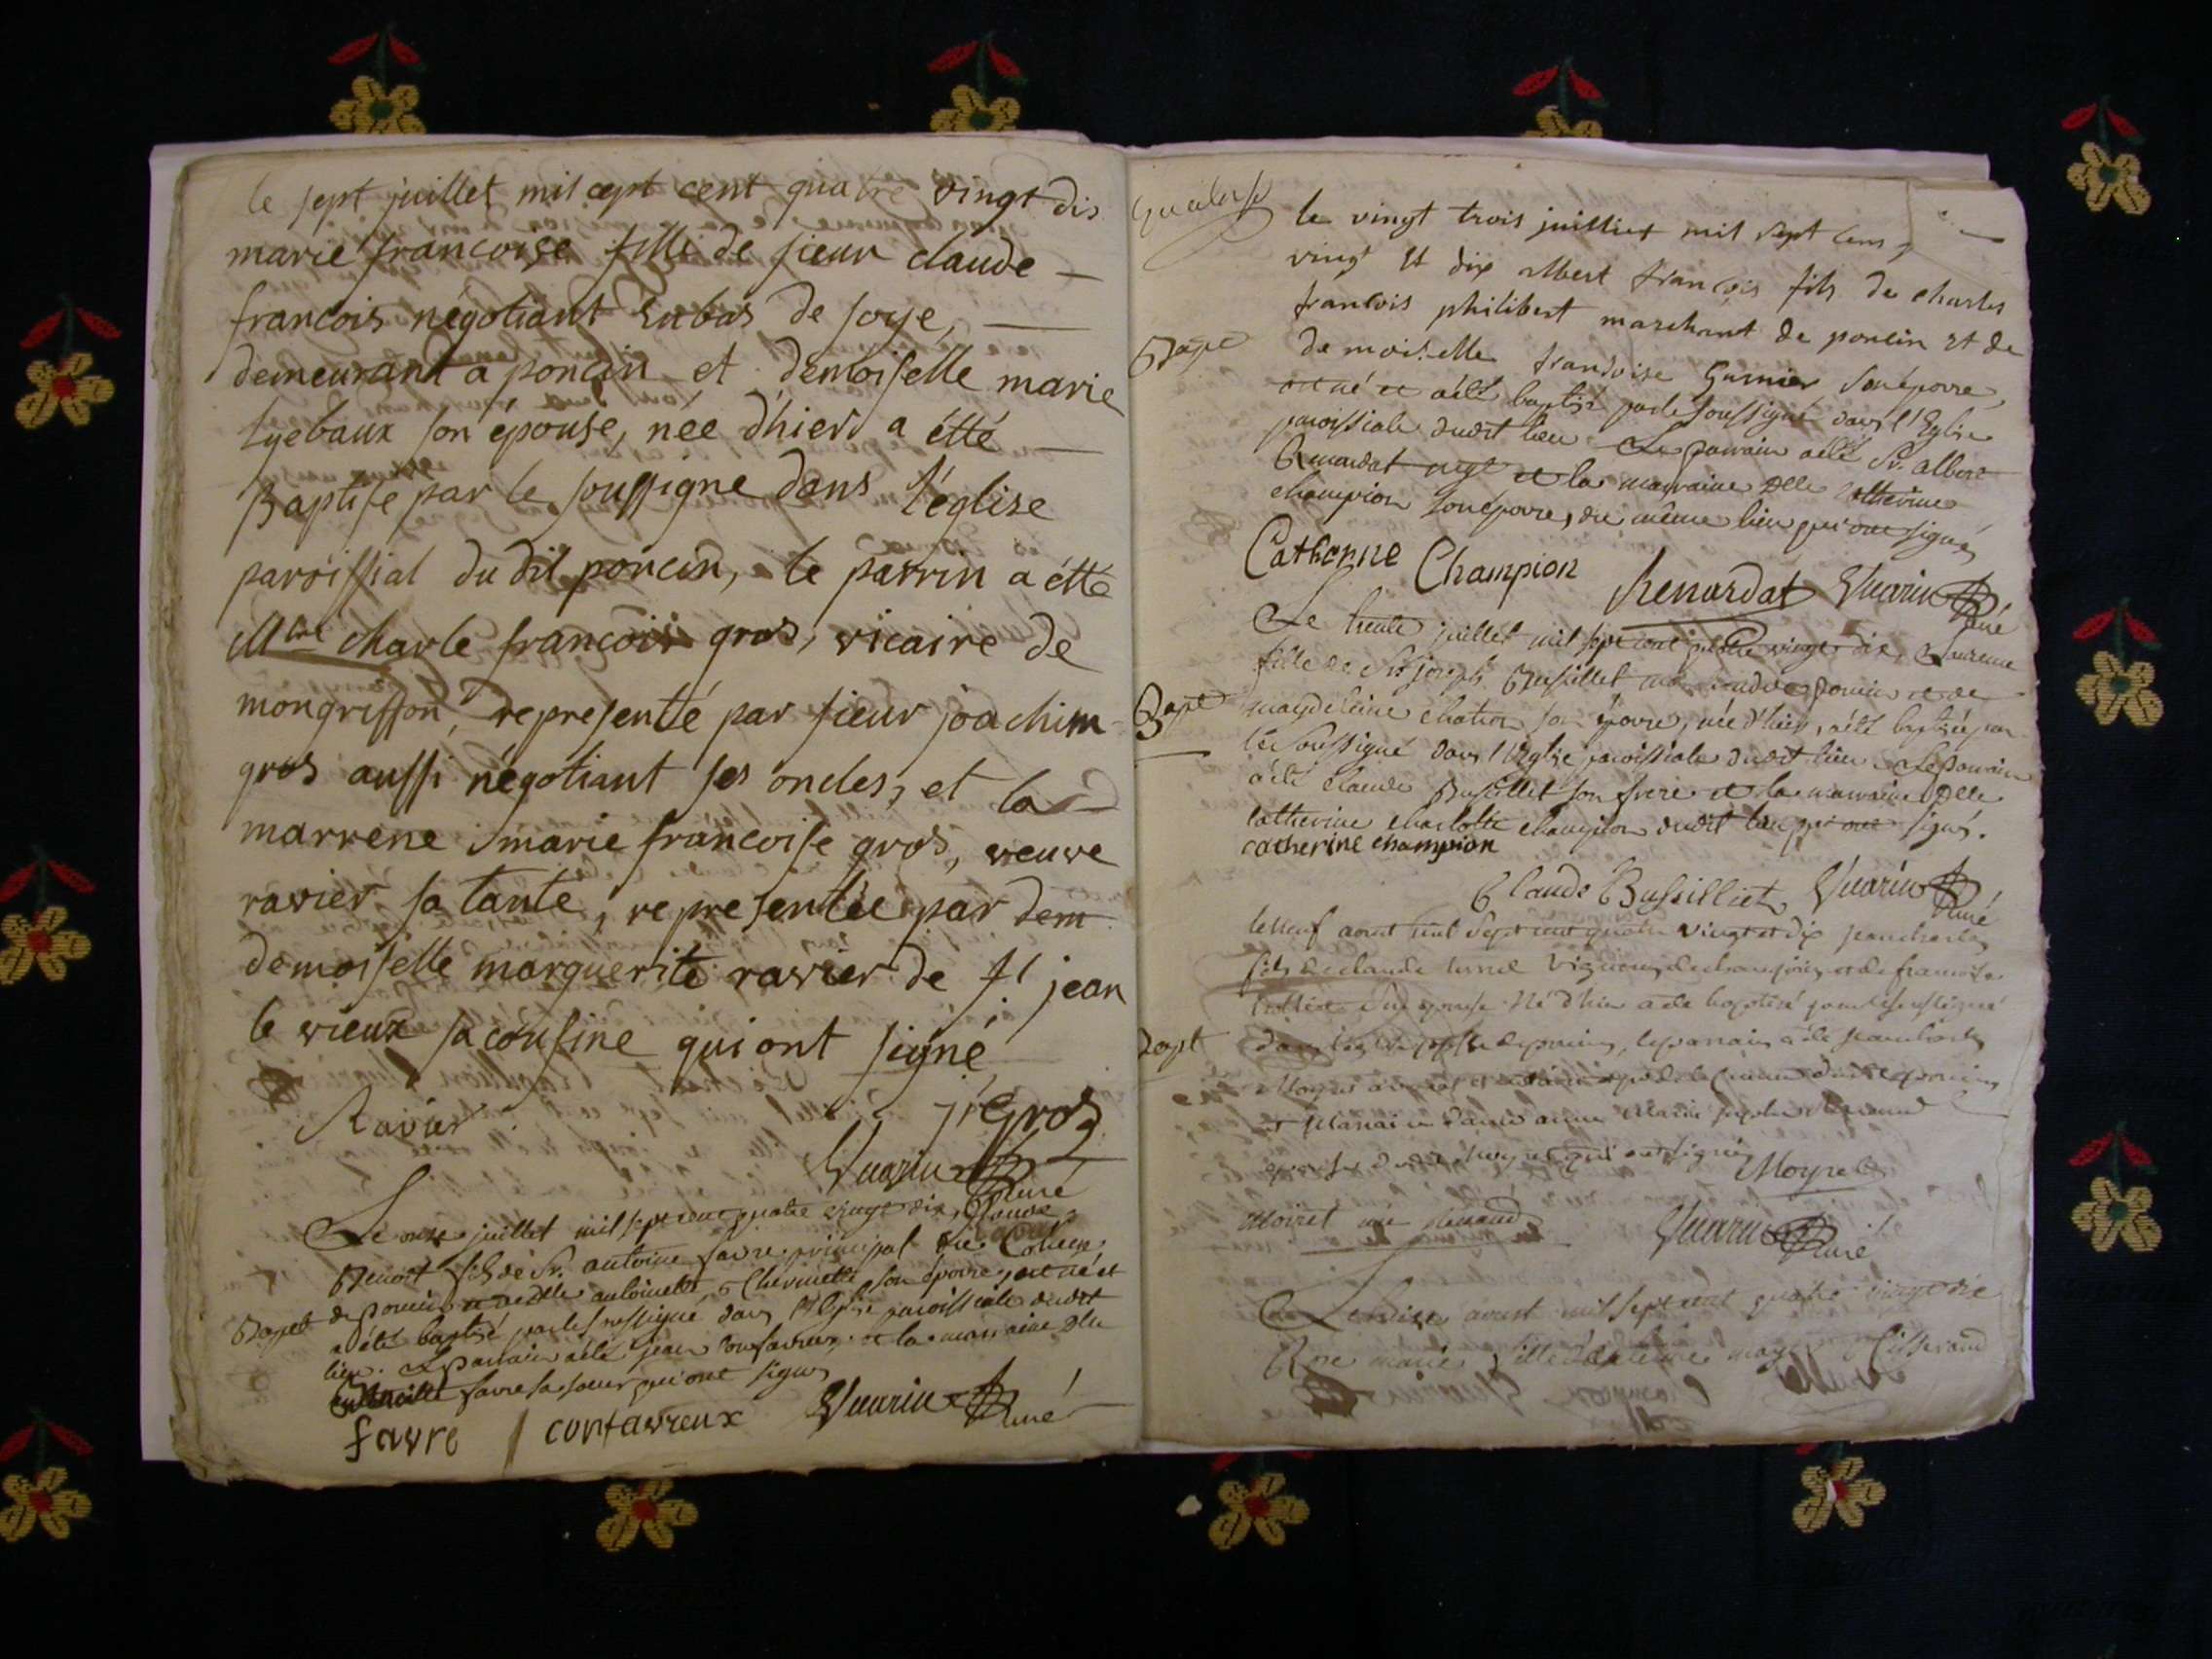 le sept juillet mil cept cent quatre vingt dis
marie francoise fille de sieur claude
francois négotiant en bas de soye,
demeurant a poncin et demoiselle marie
lyebaux son épouse, née d'hier a étté
Baptise par le soussigne dans l'église
paroissial du dit poncin, le parrin a étté
Mtre charle francois gros, vicaire de
mongriffon, representté par sieur joachim
gros aussi négotiant ses oncles, et la
marrene marie francoise gros, veuve
ravier sa tante, representée par dem
demoiselle marguerite ravier de st jean
le vieux sa cousine qui ont signé
Ravier
jh Gros
Guarin
Curé
Le onze juillet mil sept cent quatre vingt dix, Claude
Benoit fils de Sr. antoine favre principal du College
Bapt
de poncin et de dlle antoinette Chevinette son épouse, est né et
a été baptisé par le soussigné dans l'Eglise paroissiale dudit
lieu. Le parrain a été jean confavreux et la marraine dlle
favre sa soeur qui ont signé
favre
confavreux
Guarin
Curé
le vingt trois juilliet mil sept cens
vingt et dix albert francois fils de charles
francois philibert marchant de poncin et de
Bapt
demoiselle francoise Garnier son épouse
est né et a été baptisé par le soussigné dans l'Eglise
paroissiale dudit lieu. Le parrain a été Sr. albert
Renardat negt et la marraine Dlle Catherine
champion son épouse, du même lieu qui ont signé
Catherine Champion
Renardat
Guarin
Curé
Le trente juillet mil sept cent quatre vingt dix, Laurence
fille de Sr joseph Bussillet de poncin et de
Bapt
magdeleine chaton son épouse, née d'hier, a été baptisée par
le soussigné dans l'Eglise paroissiale dudit lieu. Le parrain
a été claude Bussillet son frere et la marraine Dlle
catherine charlotte champion dudit lieu qui ont signés.
catherine champion
Claude Bussilliet
Guarin
Curé
le neuf aout mil sept cent quatre vingt et dix jean charles
fils de claude vigneron de et de francoise
son épouse né d'hier a été baptisé par le soussigné
Bapt
dans l'église de poncin, le parrain a été jean charles
Moyret de poncin
et Maraine dame anne Marie
épouse dudit Moyret qui ont signé
Moyret
Moiret née Renaud
Guarin
Curé
Le treize aoust mil sept cent quatre vingt dix
marie fille d'antoine tisserand